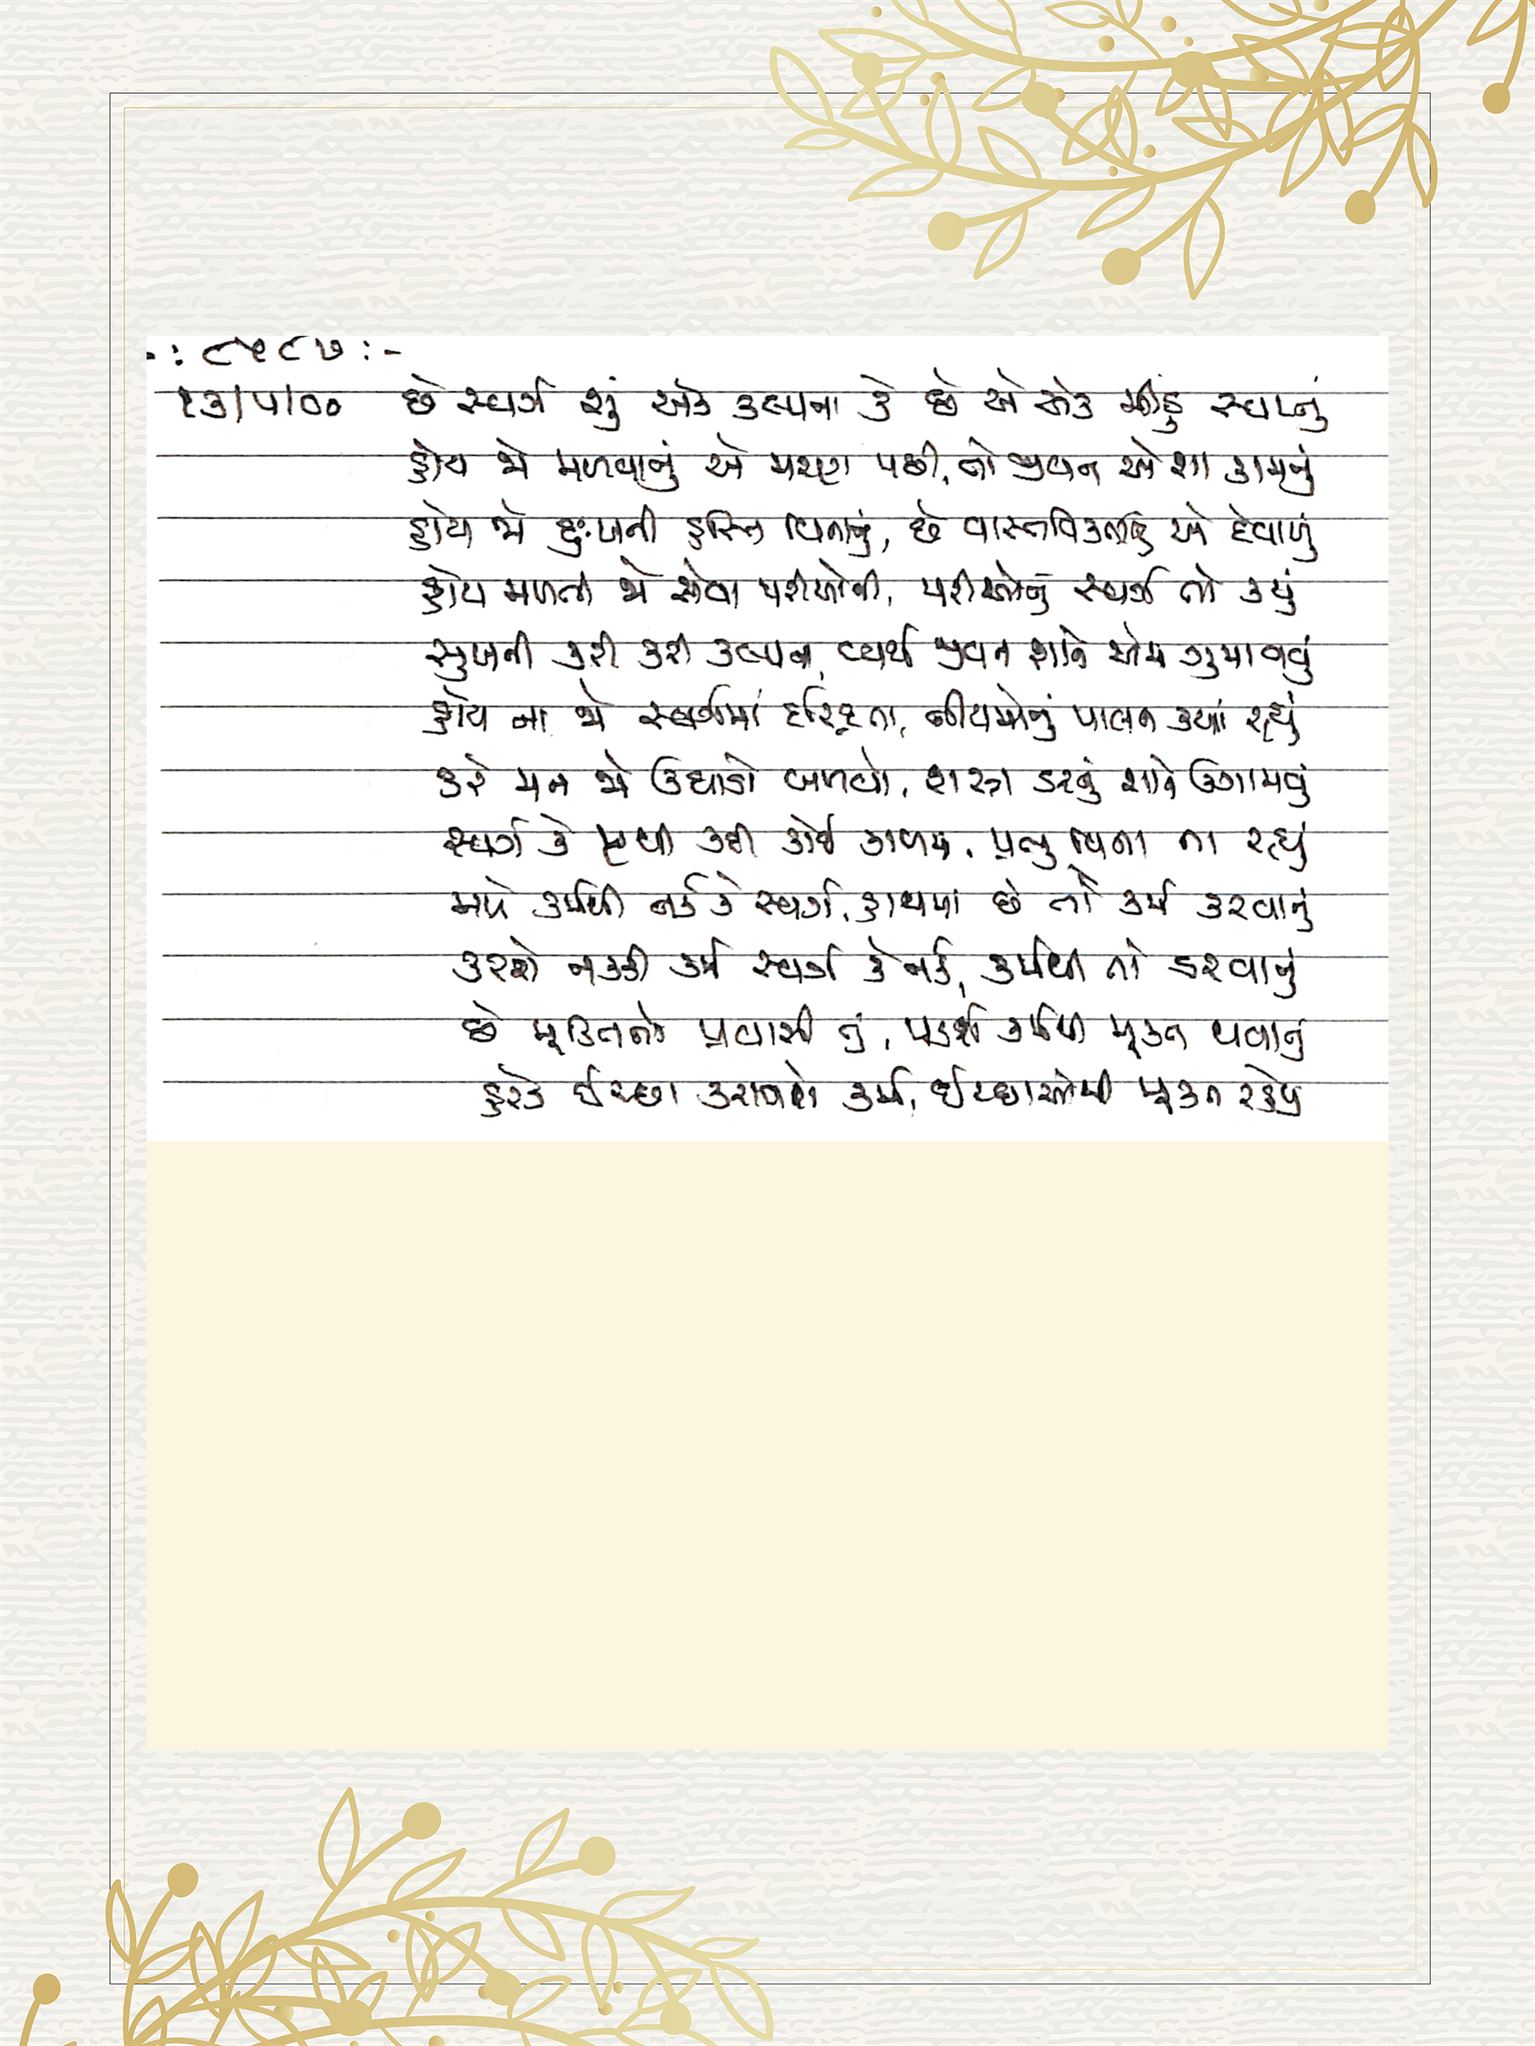 -: ૮૫૮૭ :-
૨૩/૫/૦૦ છે સ્વર્ગ શું એક કલ્પના કે છે એ એક મીઠું સ્વપ્નું
હોય જો મળવાનું એ મરણ પછી, તો જીવન એ શા કામનું
હોય જો દુઃખની હસ્તિ વિનાનું, છે વાસ્તવિકતાનું એ દેવાળું
હોય મળતી જો સેવા પરીઓની, પરીઓનું સ્વર્ગ તો કયું
સુખની કરી કરી કલ્પના, વ્યર્થ જીવન શાને એમ ગુમાવવું
હોય ના જો સ્વર્ગમાં દરિદ્રતા, નીયમોનું પાલન ક્યાં રહ્યું
કરે મન જો ઉઘાડો બળવો, શસ્ત્ર ડરનું શાને ઉગામવું
સ્વર્ગ કે પૃથ્વી કદી કોઈ કાળમાં, પ્રભુ વિના ના રહ્યું
મળે કર્મથી નર્ક કે સ્વર્ગ, હાથમાં છે તો કર્મ કરવાનું
કરશે નક્કી કર્મ સ્વર્ગ કે નર્ક, કર્મથી તો ડરવાનું
છે મૂક્તિનો પ્રવાસી તું, પડશે કર્મથી મૂક્ત થવાનું
હરેક ઈચ્છા કરાવશે કર્મ, ઈચ્છાઓથી મૂક્ત